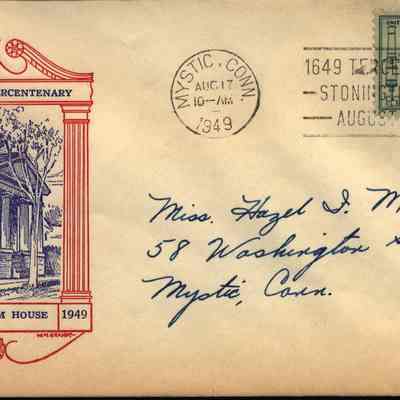 RCENTENARY
M HOUSE 1949
W.M. GRANDY
MYSTIC, CONN.
AUG 17
10-AM
1949
1649 TERCE
STONIN
AUGUST
UNIT
Miss. Hazel I. M
58 Washington
Mystic, Conn.